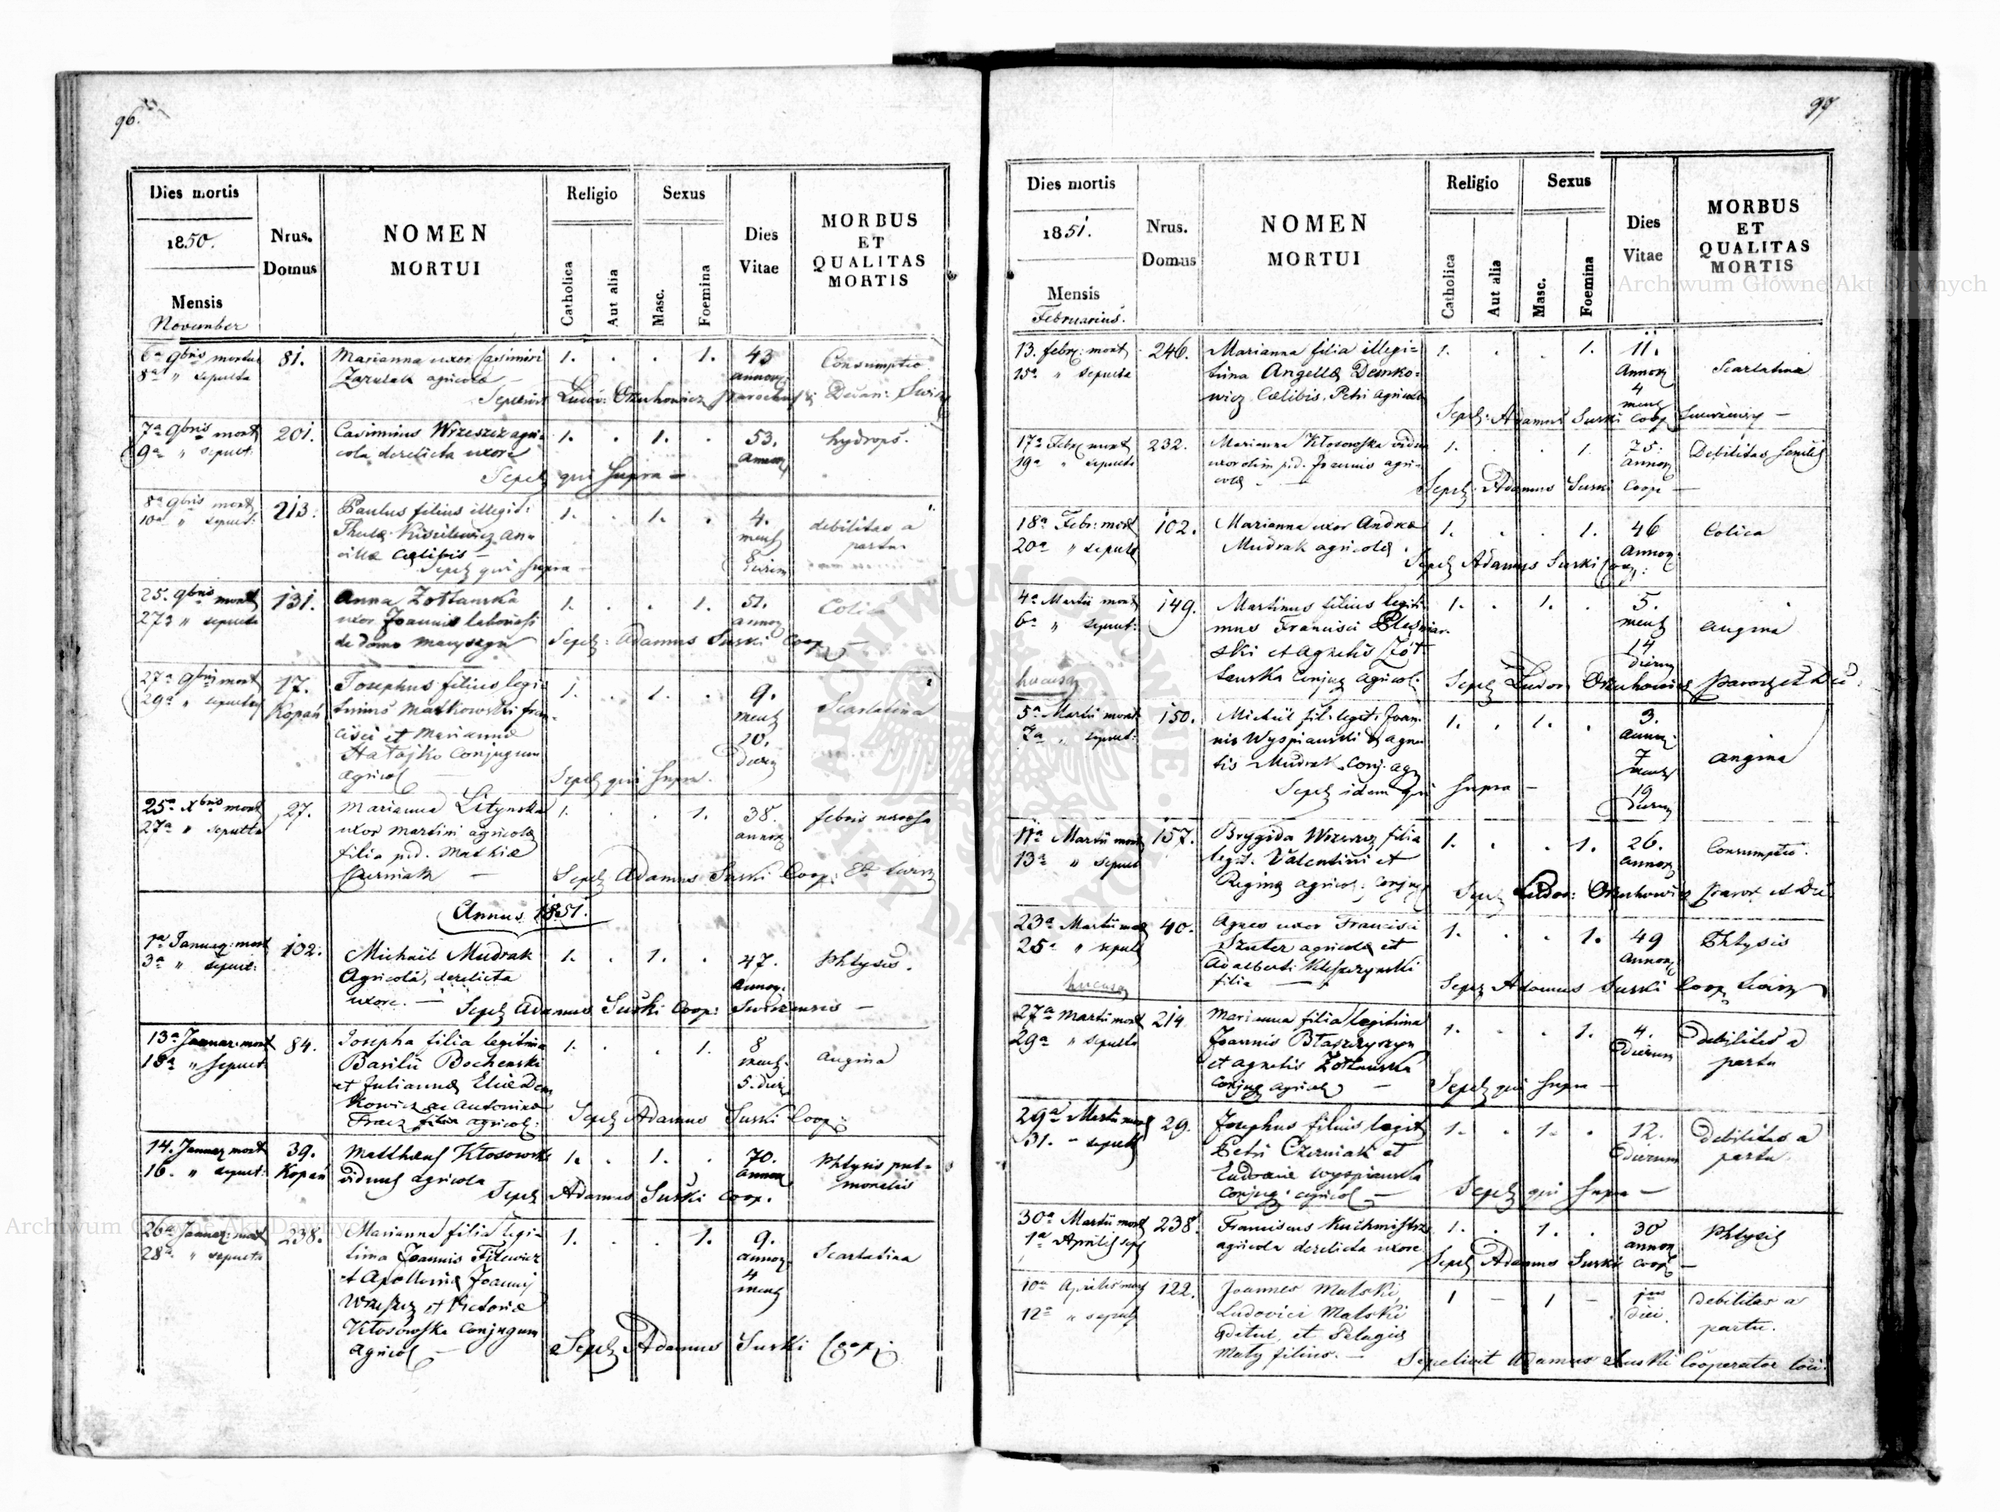 96.
Dies mortis
1850.
Mensis
November
Nrus.
Domus
NOMEN
MORTUI
Religio
Catholica
Aut alia
Sexus
Masc.
Foemina
Dies
Vitae
MORBUS
ET
QUALITAS
MORTIS
6a 9bris mortua
8a " sepulta
81.
Marianna uxor Casimiri
agricolæ
1. . . 1.
43
annor.
Consumptio
7a 9bris mort
9a " sepult:
201.
Casimirus Wrzeszcz agri-
cola derelicta uxore
1. . 1. .
53.
annor
hydrops.
Sepel qui supra –
8a 9bris mort
10a " sepult:
213.
Paulus filius illegit:
Theclæ Kisielewicz an-
cillæ Cælibis –
1. . 1. .
4.
mens
8 dierum
debilitas a
partu.
Sepel qui supra –
25. 9bris mort
27a " sepulta
131.
Anna Zotłanska
uxor Joannis laboriosi
de domo
1. . . 1.
51.
annor
Colica
Sepel: Adamus Surski Coop
27a 9bris mort
29a " sepultus
17.
Kopań
Josephus filius legi-
timus Matkowski Fran-
cisci et Marianna
Hatajko Conjugum
agricol
1. . 1. .
9.
mens
20.
dierum
Scarlatina
Sepel qui supra.
25a Xbris mort
27a " sepulta
27.
Marianna Litynska
uxor Martini agricolæ
filia pd. Mathiæ
Czerniak –
1. . . 1.
38.
annor
febris
Sepel Adamus Surski Coop:
Annus 1851.
1a Januar: mort
3a " sepult:
102.
Michaël Mudrak
Agricola, derelicta
uxore. –
1. . 1. .
47.
annor.
Phtysis.
Sepel Adamus Surski Coop:
13a Januar: mort
15a " sepult:
84.
Josepha filia legitima
Basilii Bochenski
et Julianna Eliæ Dem
kowicz ac Antonina
filia agricol:
1. . . 1.
8
mens.
5. dier
angina
Sepel Adamus Surski Coop:
14. Januar mort
16. " sepult:
39.
Kopań
Matthæus Kłosowski
viduus agricola
1. . 1. .
70.
annor
Phtysis pul-
monalis
Sepel Adamus Surski Coop.
26a Januar: mort
28a " sepulta
238.
Marianna filia legi-
tima Joannis Filewicz
et Apollonia Joannis
Wrzeszcz et Victoria
Kłosowska Conjugum
Agricol –
1. . . 1.
9.
annor
4
mens
Scarlatina
Sepel Adamus Surski Coop:
97.
Dies mortis
1851.
Mensis
Februarius.
Nrus.
Domus
NOMEN
MORTUI
Religio
Catholica
Aut alia
Sexus
Masc.
Foemina
Dies
Vitae
MORBUS
ET
QUALITAS
MORTIS
13. febr: mort
15a " sepulta
246.
Marianna filia illegi-
tima Angellæ Demko-
wicz Cælibis, Petri agricolæ
1. . . 1.
11.
annor
4
mens
Scarlatina
Sepel: Adamus Surski Coop
17a Febr mort
19a " sepulta
232.
Marianna Kłosowska vidua
uxor olim pd. Joannis agri-
colæ –
1. . . 1.
75.
annor
Debilitas senilis
Sepel: Adamus Surski Coop –
18a Febr: mort
20a " sepult
102.
Marianna uxor Andreæ
Mudrak agricolæ.
1. . . 1.
46
annor
Colica
Sepel Adamus Surski Coop:
4a Martii mort
6a " sepult:
149.
Martinus filius legiti-
mus Francisci
ski et Agnetis Zot
łanska Conjug agricol:
1. . 1. .
5.
mens
14
dierum
angina
5a Martii mort
7a " sepult:
150.
Michaël fil. legit: Joan-
nis Wyspianski et Agne-
tis Mudrak. Conj. agr
1. . 1. .
3.
annor
7
mens
19
dierum
angina
Sepel idem qui supra –
11a Martii mort
13a " sepult
157.
Brygida Wrzeszcz filia
legit. Valentini et
Regina agricol: conjug
1. . . 1.
26.
annor
Consumptio.
23a Martii mort
25a " sepult
40.
Agnes uxor Francisci
Szuter agricolæ et
Adalberti
filia –
1. . . 1.
49
annor
Phtysis
Sepel Adamus Surski Coop
27a Martii mort
29a " sepulta
214.
Marianna filia legitima
Joannis Błaszczyszyn
et Agnetis Zotłanska
Conjug agricol –
1. . . 1.
4.
dierum
debilitas a
partu
Sepel qui supra –
29a Martii mort
31. " sepult
29.
Josephus filius legit
Petri Czerniak et
Ludovica Wyspianska
Conjug: agricol –
1. . 1. .
12.
dierum
debilitas a
partu
Sepel qui supra –
30a Martii mort
1a Aprilis sep
238.
Franciscus Kuchmistrz
agricola derelicta uxore
1. . 1. .
30
annor
Phtysis
Sepel Adamus Surski Coop –
10a Aprilis mort
12a " sepult
122.
Joannes Malski,
Ludovici Malski
et Pelagia
Mały filius. –
1 – 1 –
diei.
debilitas a
partu.
Sepelivit Adamus Surski Cooperator loci.
Archiwum Główne Akt Dawnych
Archiwum Główne Akt Dawnych
ARCHIWUM GŁÓWNE · AKT DAWNYCH ·